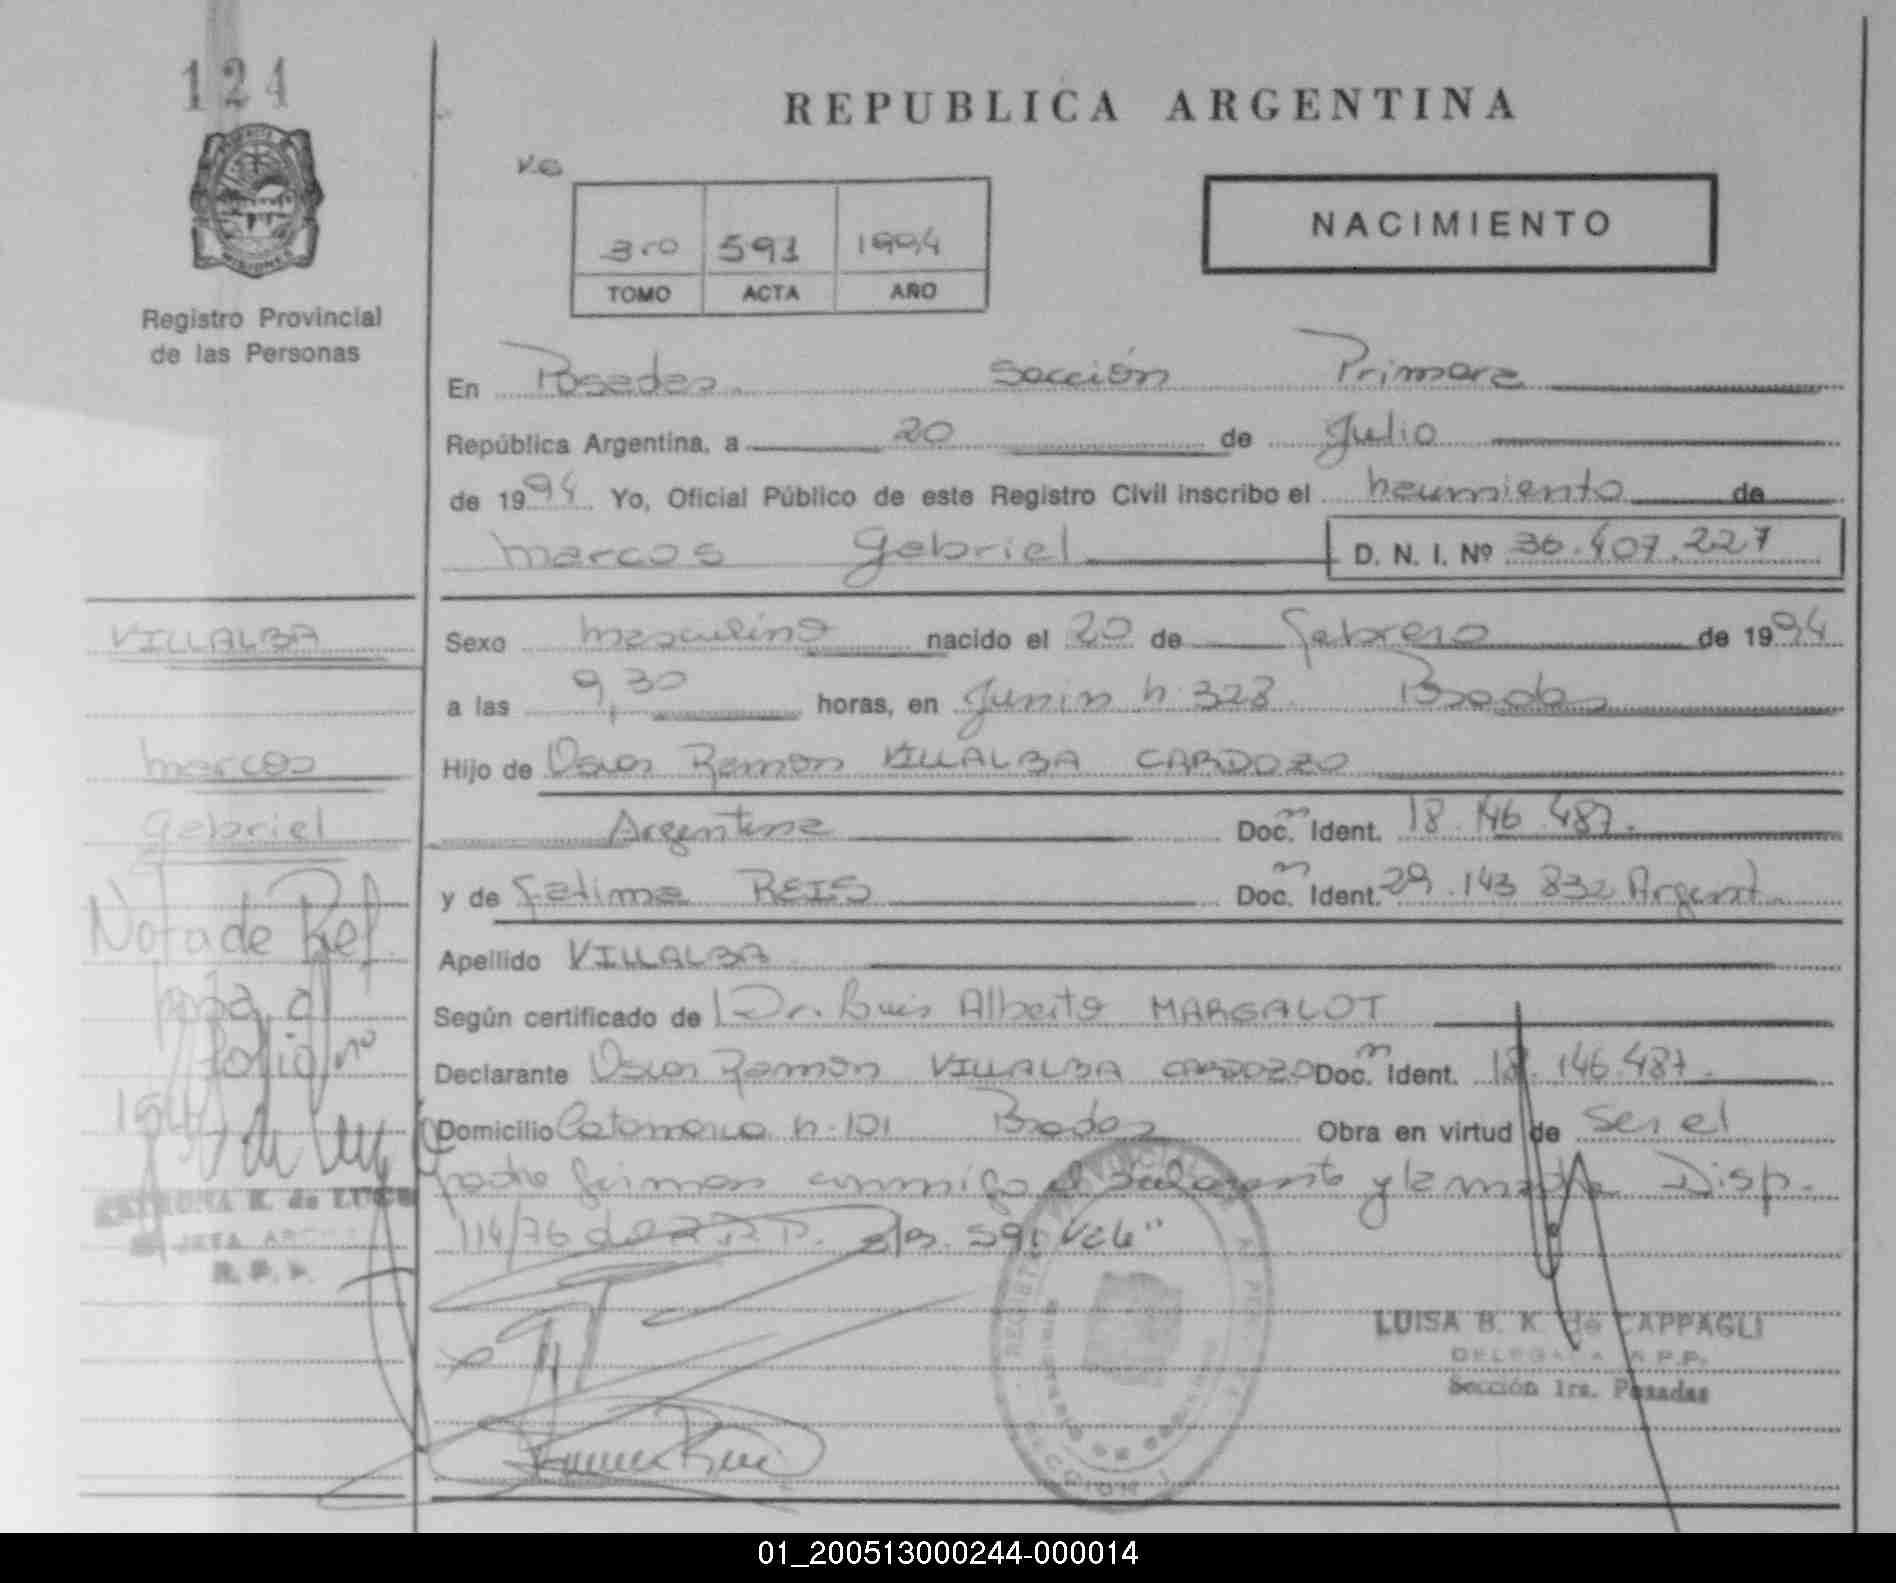 124
REPUBLICA ARGENTINA
MISIONES
Registro Provincial
de las Personas
3ro 591 1994
TOMO ACTA AÑO
NACIMIENTO
En Posadas Sección Primera
República Argentina, a 20 de Julio
de 1994 Yo, Oficial Público de este Registro Civil inscribo el nacimiento de
Marcos Gabriel D. N. I. Nº 36.407.227
VILLALBA
Marcos
Gabriel
Sexo masculino nacido el 20 de febrero de 1994
a las 9,30 horas, en Junin n. 328 Posadas
Hijo de Oscar Ramon VILLALBA CARDOZO
Argentina Doc. Ident. 18.146.487.
y de Fatima REIS Doc. Ident. 29.143.832 Argent.
Apellido VILLALBA
Según certificado de Dr. Luis Alberto MARGALOT
Declarante Oscar Ramon VILLALBA CARDOZO Doc. Ident. 18.146.487
Domicilio Catamarca n. 101 Posadas Obra en virtud de ser el
padre firman conmigo el declarante y la madre Disp.
114/76 591 Vale"
Nota de Ref.
folio nº
R. P. P.
LUISA B. K. de CAPPAGLI
DELEGADA R.P.P.
Sección 1ra. Posadas
01_200513000244-000014